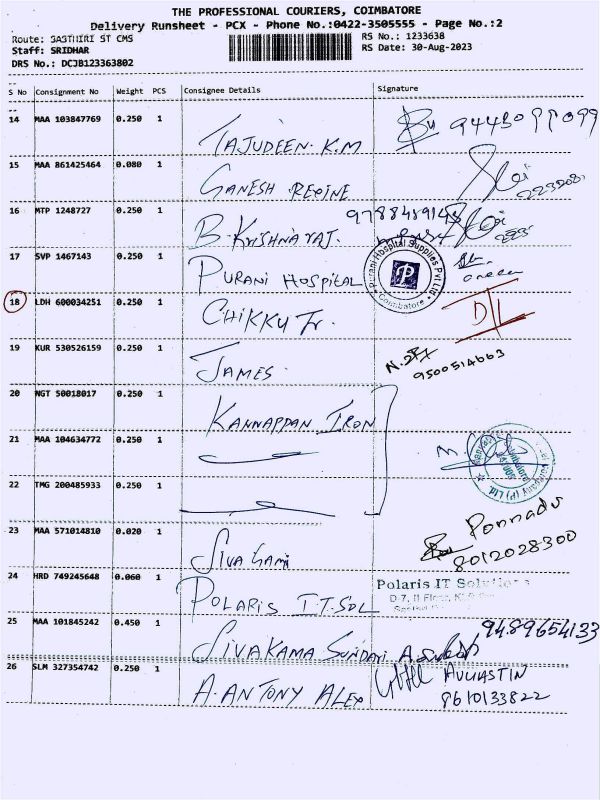 THE PROFESSIONAL COURIERS, COIMBATORE
Delivery Runsheet - PCX - Phone No.:0422-3505555 - Page No.:2
Route: SASTHIRI ST CMS
RS No.: 1233638
Staff: SRIDHAR
RS Date: 30-Aug-2023
DRS No.: DCJB123363802
S No Consignment No Weight PCS Consignee Details Signature
14 MAA 103847769 0.250 1 TAJUDEEN K.M
15 MAA 861425464 0.080 1 GANESH
16 MTP 1248727 0.250 1 B. KRISHNARAJ.
17 SVP 1467143 0.250 1 PURANI HOSPITAL
Purani Hospital Supplies Pvt Ltd
P
Coimbatore
18 LDH 600034251 0.250 1 CHIKKU Jr.
19 KUR 530526159 0.250 1 JAMES
9500514663
20 NGT 50018017 0.250 1 KANNAPPAN IRON
21 MAA 104634772 0.250 1
22 TMG 200485933 0.250 1
23 MAA 571014810 0.020 1 SIVAGAMI
Ponnadu
8012028300
24 HRD 749245648 0.060 1 POLARIS I.T. SOL
Polaris IT Solutions
25 MAA 101845242 0.450 1 SIVAKAMA SUNDARI
9489654133
26 SLM 327354742 0.250 1 A. ANTONY ALEX
9610133822